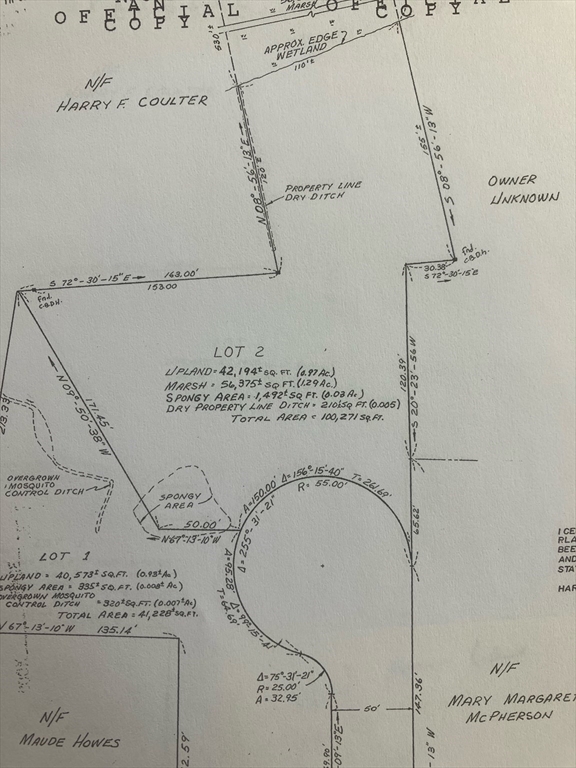 OFFICIAL
COPY
OFFICIAL
COPY
MARSH
APPROX. EDGE
WETLAND
110'±
N/F
HARRY F. COULTER
N 08°-56'-13"E
120'±
165'±
S 08°-56'-13"W
PROPERTY LINE
DRY DITCH
OWNER
UNKNOWN
S 72°-30'-15"E
163.00'
153.00
fnd.
C.B.D.H.
fnd.
C.B.D.H.
30.38'
S 72°-30'-15"E
LOT 2
UPLAND = 42,194± SQ. FT. (0.97 Ac.)
MARSH = 56,375± SQ. FT. (1.29 Ac.)
SPONGY AREA = 1,492± SQ. FT. (0.03 Ac.)
DRY PROPERTY LINE DITCH = 210± SQ. FT. (0.005)
TOTAL AREA = 100,271 SQ. FT.
120.39'
S 20°-23'-56"W
N 09°-50'-38"W
171.45'
213.33'
OVERGROWN
MOSQUITO
CONTROL DITCH
SPONGY
AREA
50.00'
N 67°-13'-10"W
A=150.00'
Δ=156°-15'-40"
T=261.69'
R=55.00'
Δ=255°-31'-21"
65.62'
A=95.28'
T=64.69'
LOT 1
UPLAND = 40,573± SQ. FT. (0.93± Ac)
SPONGY AREA = 335± SQ. FT. (0.008± Ac)
OVERGROWN MOSQUITO
CONTROL DITCH = 320± SQ. FT. (0.007± Ac)
TOTAL AREA = 41,228± SQ. FT.
N 67°-13'-10"W
135.14'
Δ=75°-31'-21"
R=25.00'
A=32.95'
50'
147.36'
N/F
MARY MARGARET
McPHERSON
N/F
MAUDE HOWES
2.59'
-09'-13"E
-13"W
I CE
PLA
BEE
AND
STAT
HAR